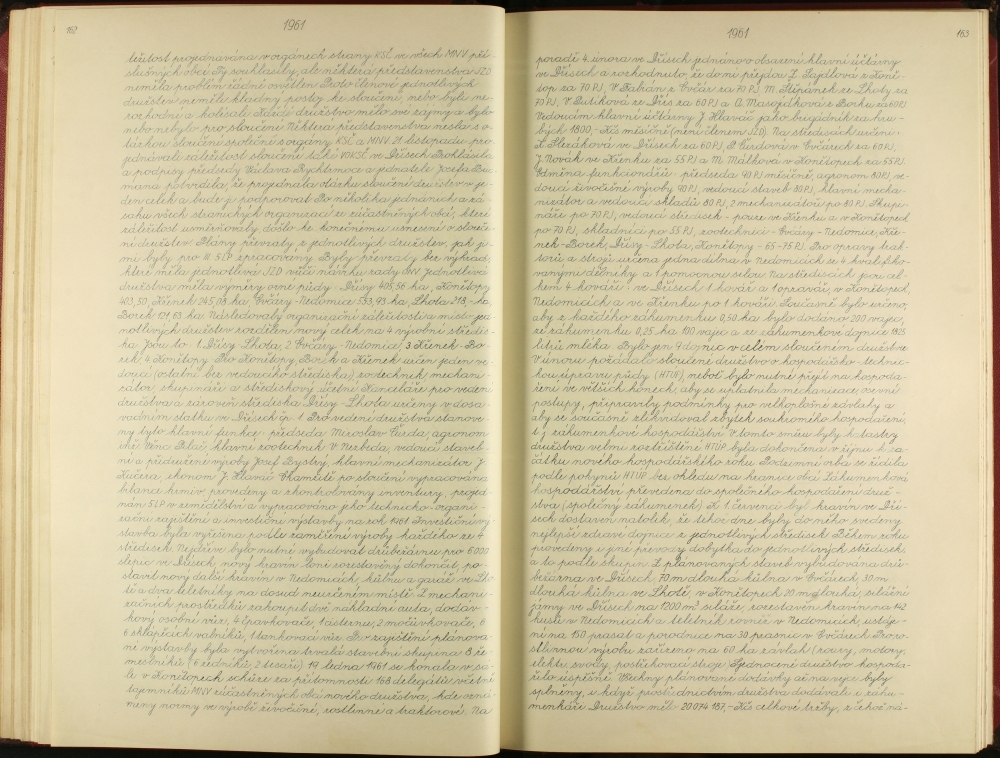 162
1961
ležitost projednávána v orgánech strany KSČ ve všech MNV pří-
slušných obcí. Ty souhlasily, ale některá představenstva JZD
neměla problém řádně osvětlen. Proto členové jednotlivých
družstev neměli kladný postoj ke sloučení, nebo byli ne-
rozhodní a kolísali. Každé družstvo mělo své zájmy a bylo
nebo nebylo pro sloučení. Některá představenstva nesla s o-
tázkou sloučení společně s orgány KSČ a MNV. 21. listopadu pro-
jednávali záležitost sloučení také VOKSČ ve Dřísech. Prohlásila
a podpisy předsedy Václava Rychtrmoce a jednatele Josefa Buc-
mana potvrdila, že projednala otázku sloučení družstev v je-
den celek a bude ji podporovat. Po několika jednáních a zá-
sahu všech stranických organizací ze zúčastněných obcí, které
záležitost usměrňovaly došlo ke konečnému usnesení o slouče-
ní družstev. Plány převzaty z jednotlivých družstev, jak je-
mi byly pro III. 5LP zpracovány. Byly převzaty bez výhrad,
které měla jednotlivá JZD vůči návrhu rady ONV. Jednotlivá
družstva měla výměry orné půdy: Dřísy 405,56 ha, Konětopy
403,50, Křenek 245,08 ha, Ovčáry-Nedomice 553,93 ha, Lhota 218,- ha,
Borek 121,63 ha. Následovaly organizační záležitosti a místo jed-
notlivých družstev rozdělen nový celek na 4 výrobní středis-
ka. Jsou to: 1. Dřísy Lhota, 2. Ovčáry - Nedomice, 3. Křenek - Bo-
rek, 4. Konětopy. Pro Konětopy, Borek a Křenek určen jeden ve-
doucí (ostatní bez vedoucího střediska), zootechnik, mechani-
zátor, skupináři a střediskový účetní. Kanceláře pro vedení
družstva a zároveň střediska Dřísy - Lhota určeny v dosa-
vadním statku ve Dřísech čp. 1. Pro vedení družstva stanove-
ny tyto hlavní funkce: předseda Miroslav Čůeda, agronom
ing. Věnc. Ptáč, hlavní zootechnik V. Nezbeda, vedoucí staveb-
ní a přidružené výroby Josef Bystrý, hlavní mechanizátor J.
Kučera, ekonom J. Hlaváč. Okamžitě po sloučení vypracována
bilance krmiv, provedeny a zkontrolovány inventury, projed-
nán 5LP v zemědělství a vypracováno jeho technicko-organi-
zační zajištění a investiční výstavby na rok 1961. Investiční vý-
stavba byla vyřešena podle zaměření výroby každého ze 4
středisek. Nejdříve bylo nutné vybudovat drůbežárnu pro 6000
slepic ve Dřísech, nový kravín loni rozestavěný dokončit, po-
stavit nový další kravín v Nedomicích, kůlnu a garáž ve Lho-
tě a dva teletníky na dosud neurčeném místě. Z mechani-
začních prostředků zakoupit dvě nákladní auta, dodáv-
kový osobní vůz, 4 čpavkovače, 1 cisternu, 2 močůvkovače, 6
6 sklápěcích valníků, 1 tankovací vůz. Pro zajištění plánova-
né výstavby byla vytvořena trvalá stavební skupina 8 ře-
meslníků (6 zedníků, 2 tesaři). 19. ledna 1961 se konala v sá-
le v Konětopech schůze za přítomnosti 168 delegátů včetně
tajemníků MNV zúčastněných obcí nového družstva, kde ozná-
meny normy ve výrobě živočišné, rostlinné a traktorové. Na
1961
163
poradě 4. února ve Dřísech jednáno o obsazení hlavní účtárny
ve Dřísech a rozhodnuto, že do ní přejdou Z. Šajdlová z Koně-
top za 70 PJ, V. Fabián z Ovčár za 70 PJ, M. Štěpánek ze Lhoty za
70 PJ, V. Dutíková ze Dřís za 60 PJ a A. Masojídková z Borku za 60 PJ.
Vedoucím hlavní účtárny J. Hlaváč jako brigádník za hru-
bých 1800,- Kčs měsíčně (není členem JZD). Na střediscích určeni:
L. Slezáková ve Dřísech za 60 PJ, B. Čerdová v Ovčárech za 60 PJ,
J. Novák ve Křenku za 55 PJ a M. Málková v Konětopech za 55 PJ.
Odměna funkcionářů - předseda 90 PJ měsíčně, agronom 80 PJ, ve-
doucí živočišné výroby 90 PJ, vedoucí staveb 80 PJ, hlavní mecha-
nizátor a vedoucí skladů 80 PJ, 2 mechanizátoři po 80 PJ. Skupi-
náři po 70 PJ, vedoucí středisek - pouze ve Křenku a v Konětopech
po 70 PJ, skladníci po 55 PJ, zootechnici - Ovčáry - Nedomice, Kře-
nek - Borek, Dřísy - Lhota, Konětopy - 65-75 PJ. Pro opravy trak-
torů a strojů určena jedna dílna v Nedomicích se 4 kvalifiko-
vanými dělníky a 1 pomocnou silou. Na střediscích jsou cel-
kem 4 kováři: ve Dřísech 1 kovář a 1 opravář, v Konětopech,
Nedomicích a ve Křenku po 1 kováři. Současně bylo určeno,
aby z každého záhumenku 0,50 ha bylo dodáno 200 vajec,
ze záhumenku 0,25 ha 100 vajec a ze záhumenkové dojnice 1825
litrů mléka. Bylo jen 9 dojnic v celém sloučeném družstvě.
V únoru požádalo sloučené družstvo o hospodářsko-technic-
kou úpravu půdy (HTÚP), neboť bylo nutné přejít na hospoda-
ření ve větších honech, aby se uplatnila mechanizace, osevní
postupy, připravily podmínky pro velkoplošné závlahy a
aby se současně zlikvidoval zbytek soukromého hospodaření,
t.j. záhumenkové hospodářství. V tomto směru byly katastry
družstva velmi roztříštěné. HTÚP byla dokončena v říjnu k za-
čátku nového hospodářského roku. Podzimní orba se řídila
podle pokynů HTÚP bez ohledu na hranice obcí. Záhumenková
hospodářství převedena do společného hospodaření druž-
stva (společný záhumenek). K 1. červenci byl kravín ve Dří-
sech dostavěn natolik, že tehož dne byly do něho svedeny
nejlepší zdravé dojnice z jednotlivých středisek. Během roku
provedeny i jiné převody dobytka do jednotlivých středisek,
a to podle skupin. Z plánovaných staveb vybudována drů-
bežárna ve Dřísech, 70 m dlouhá kůlna v Ovčárech, 30 m
dlouhá kůlna ve Lhotě, v Konětopech 20 m dlouhá, silážní
jámy ve Dřísech na 1200 m³ siláže, rozestavěn kravín na 142
kusů v Nedomicích a teletník rovněž v Nedomicích, ustáje-
ní na 150 prasat a porodnice na 30 prasnic v Ovčárech. Pro ro-
stlinnou výrobu zařízeno na 60 ha závlah (roury, motory,
elektr. svody, postřikovací stroje). Sjednocené družstvo hospoda-
řilo úspěšně. Všechny plánované dodávky až na vejce byly
splněny, i když prostřednictvím družstva dodávali i záhu-
menkáři. Družstvo mělo 20 074 187,- Kčs celkové tržby, z čehož ná-